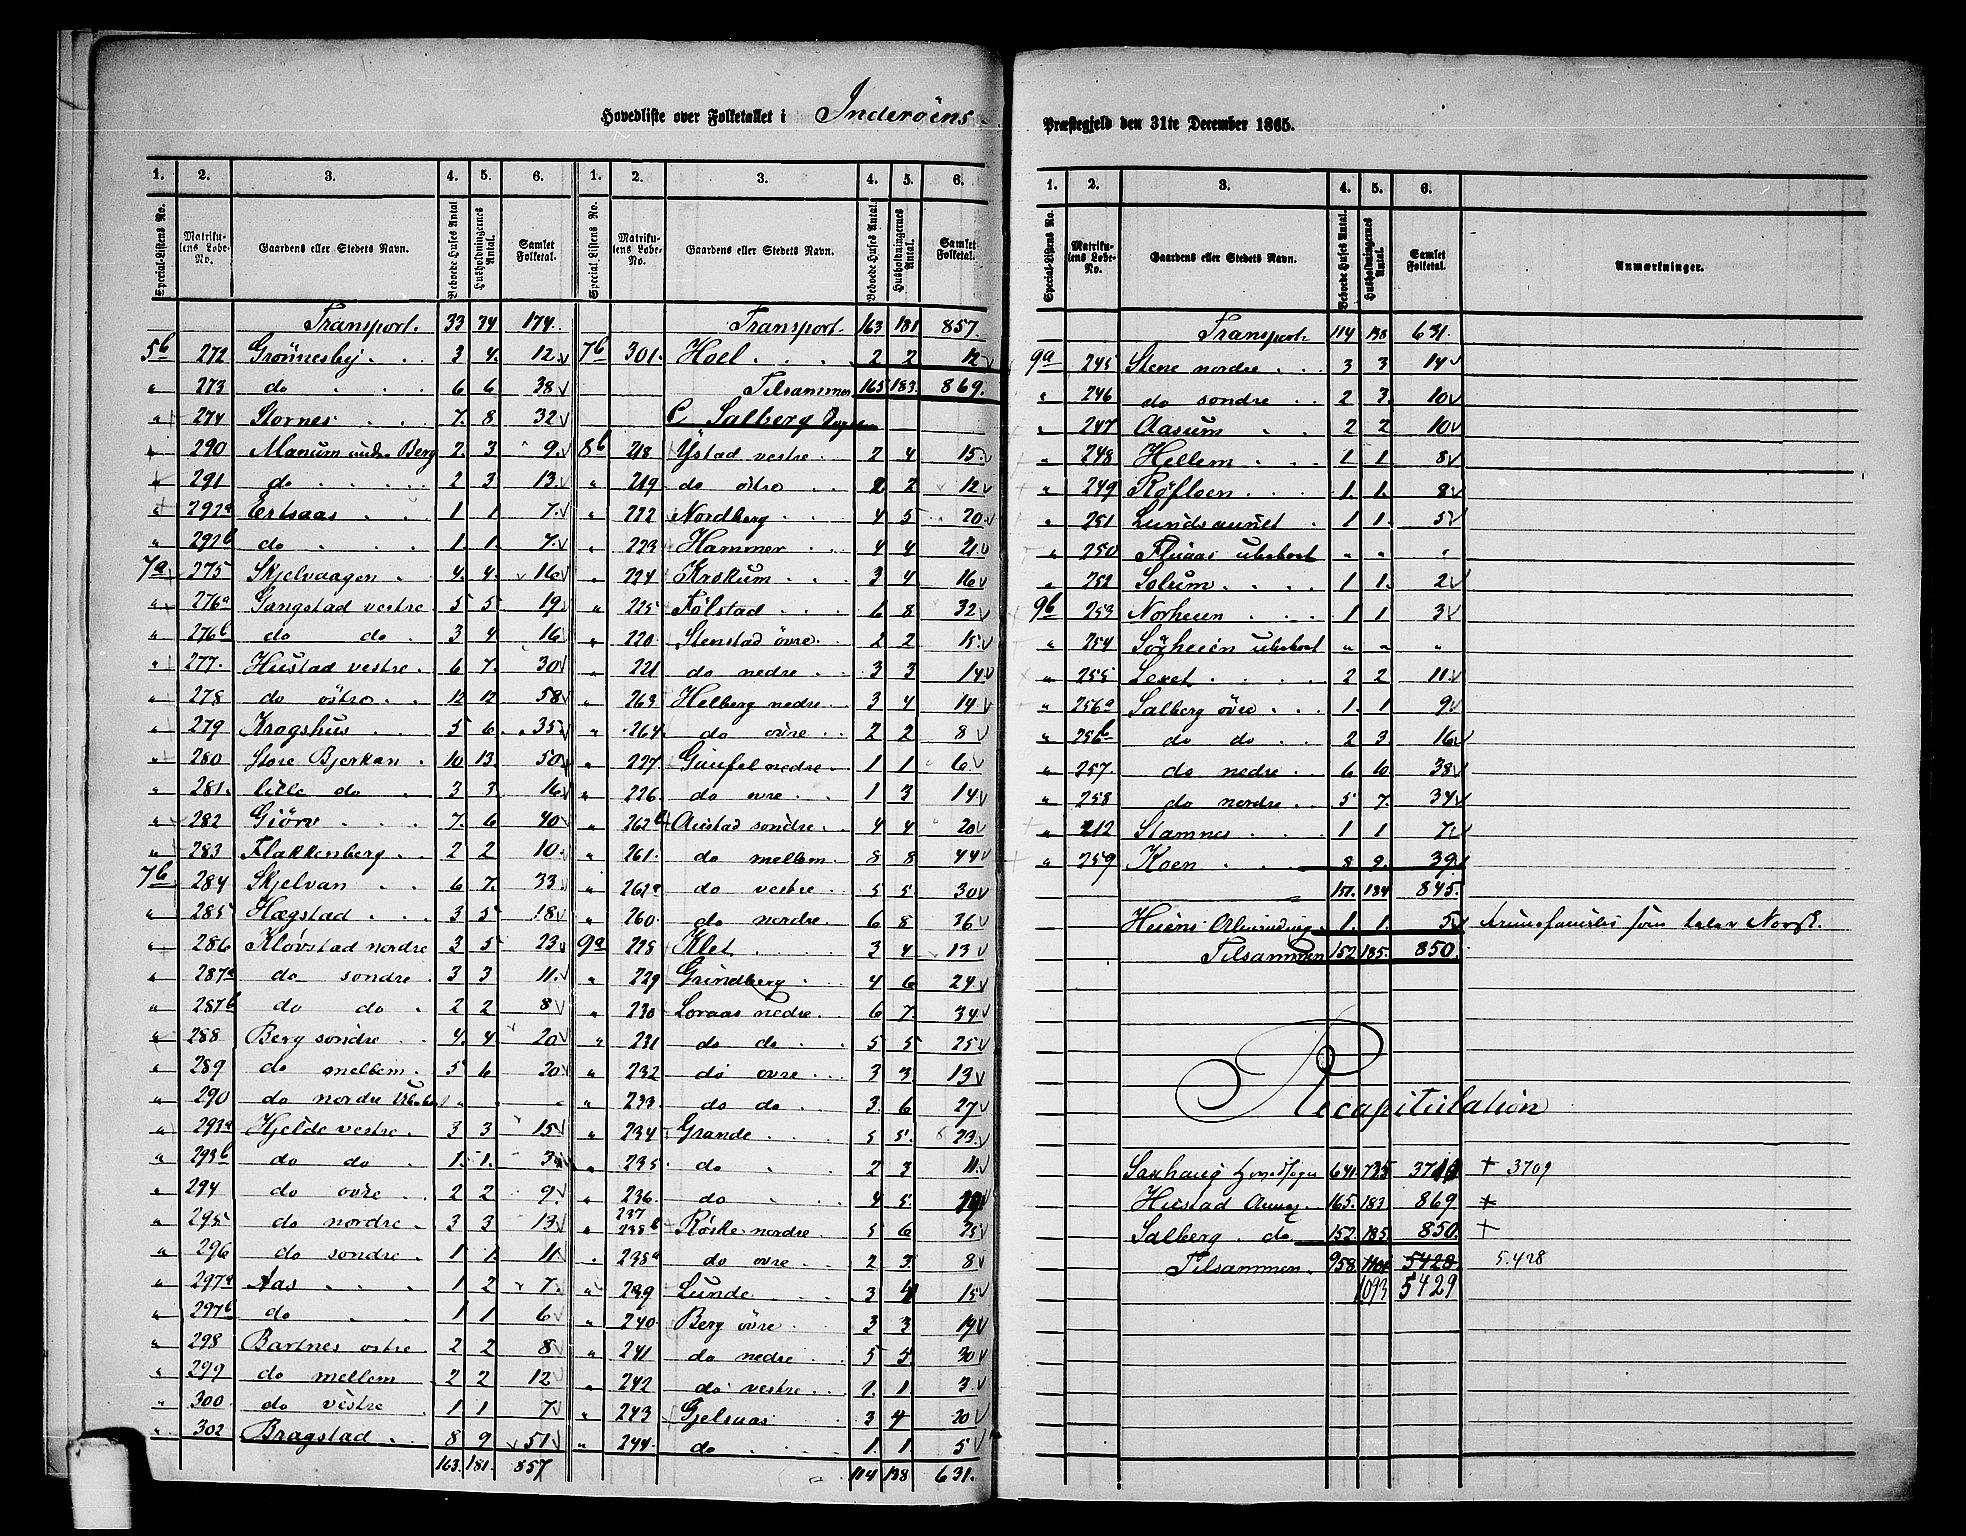 Hovedliste over Folketallet i Inderøens
Præstegjeld den 31te December 1865.
1. 2. 3. 4. 5. 6. 1. 2. 3. 4. 5. 6.
Special-Listens No. Matrikulens Løbe-No. Gaardens eller Stedets Navn. Beboede Huses Antal Husholdningernes Antal. Samlet Folketal. Special Listens No. Matrikulens Løbe-No. Gaardens eller Stedets Navn. Beboede Huses Antal. Husholdningernes Antal. Samlet Folketal.
Transport. 33 34 174.
5b 272 Grönnesby. 3 4. 12.
" 273 do 6 6 38
" 274 Stornes. 7. 8 32
" 290 Manum undr Berg 2. 3 9.
" 291 do 2 3 13.
" 292a Ertsaas 1 1 7.
" 292b do 1. 1. 7.
7a 275 Skjelvaagen 4. 4. 16
" 276a Gangstad vestre 5 5 19
" 276b do do 3 4 16
" 277. Hustad vestre. 6 7. 30
" 278 do östre. 12 12 58
" 279 Kragshus 5 6. 35
" 280 Store Bjerkan. 10 13. 50
" 281. litle do 3 3. 16
" 282 Giörv 7. 6 40
" 283 Flakkenberg 2 2 10.
7b 284 Skjelvan 6 7. 33.
" 285 Hægstad 3 5 18
" 286 Klövstad nordre 3 5. 23
" 287a do söndre. 3 3 11.
" 287b do do 2 2 8
" 288 Berg söndre. 4. 4 20
" 289 do mellem. 5 6 30
" 290 do nordre " " "
" 293a Hjelde vestre. 3 3 15
" 293b do do 1. 1. 3
" 294 do övre 2 2 9.
" 295 do nordre. 3 3 13
" 296 do söndre. 1 1. 11.
" 297a Aas 1 2 7.
" 297b do 1 1 6
" 298 Bartnes östre 2 2 8
" 299 do mellem 2 2 12
" 300 do vestre 1 1 7
" 302 Bragstad 8 9 51
163. 181. 857
Transport. 163 181 857.
7b 301. Hoel 2 2 12
Tilsammen 165 183. 869.
C Salberg Sogn
8b 218 Ystad vestre. 2 4 15
" 219 do östre 2 2 12
" 222 Nordberg 4 5 20
" 223 Hammer 4 4 21
" 224 Krokum 3 4 16
" 225 Fölstad 6 8 32
" 220 Stenstad övre. 2 2 15
" 221 do nedre. 3 3 14
" 263 Helberg nedre. 3 4 14
" 264. do övre 2 2 8
" 227 Gaufel nedre. 1 1 6
" 226. do övre. 1 3 14
" 262b Austad söndre. 4 4 20
" 261. do mellem. 8 8 44
" 262a do vestre 5 5 30
" 260. do nordre 6 8 26
9a 228 Klet 3 4 13
" 229 Grindberg 4 6 24
" 230 Loraas nedre. 6 7. 34
" 231 do do. 5 5 25
" 232 do övre 3 3. 13
" 233. do do 3. 6 27
" 234 Grande 5 5. 23.
" 235. do 2 3 11.
" 236. do 4 5.
" 237 238b Röske nordre 5 6 25
" 238a do övre 2 3. 8
" 239 Lunde 3 4 15
" 240. Berg övre 3 3 19
" 241 do nedre 5 5. 30
" 242 do vestre 1. 1. 3
" 243 Gjelsaas 3 4 20
" 244. do 1. 1. 5
114 138 631.
1. 2. 3. 4. 5. 6.
Special-Listens No. Matrikulens Løbe-No. Gaardens eller Stedets Navn. Beboede Huses Antal. Husholdningernes Antal. Samlet Folketal. Anmærkninger.
Transport. 114 138 631.
9a 245 Stene nordre 3 3 14
" 246 do söndre 2 3. 10
" 247 Aasum 2 2 10
" 248 Hellem 1 1. 8
" 249 Röfloen 1. 1. 8
" 251 Lundsaunet 1 1. 5
" 250 Fluaas ubeboet " " "
" 252 Solum 1 1. 2
9b 253 Norheim 1 1 3
" 254 Sörheim ubeboet " " "
" 255 Lexet 2 2 11.
" 256a Salberg övre 1. 1 9
" 256b do do 2 3. 16
" 257. do nedre 6 10. 38
" 258 do nordre. 5 7. 34
" 212 Stamnes 1 1 7.
" 259 Koen 8 9. 39
151. 184 845.
Heiens Alminding 1. 1. 5 som taler Norsk.
Tilsammen 152 185. 850.
Recapitulation
Saxhaug Hovedsogn 641. 725 + 3709
Hustad Annex. 165. 183 869 +
Salberg do 152. 185. 850. +
Tilsammen. 958. 5428 5.428
1093 5429